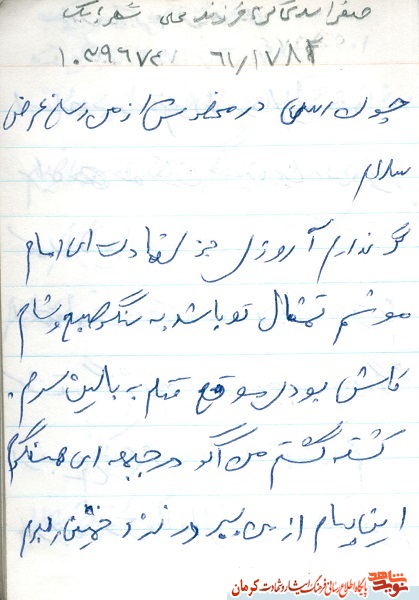 صفر اسدی گ فرزند علی شهر بابک
۱۰۳۹۶۷۴ ۶۱/۱۷۸۲
چون رسی در محضرش از من رسان عرض
سلام
گر ندارم آرزوئی جز لقاءت ای امام
مونسم تمثال تو باشد به سنگر صبح و شام
کاش بودی موقع قتلم به بالین سرم
کشته گشتم من اگر در جبهه ای همسنگرم
این پیام از من ببر در نزد خمینی رهبرم
نوید شاهد
پایگاه اطلاع رسانی فرهنگ ایثار و شهادت کرمان